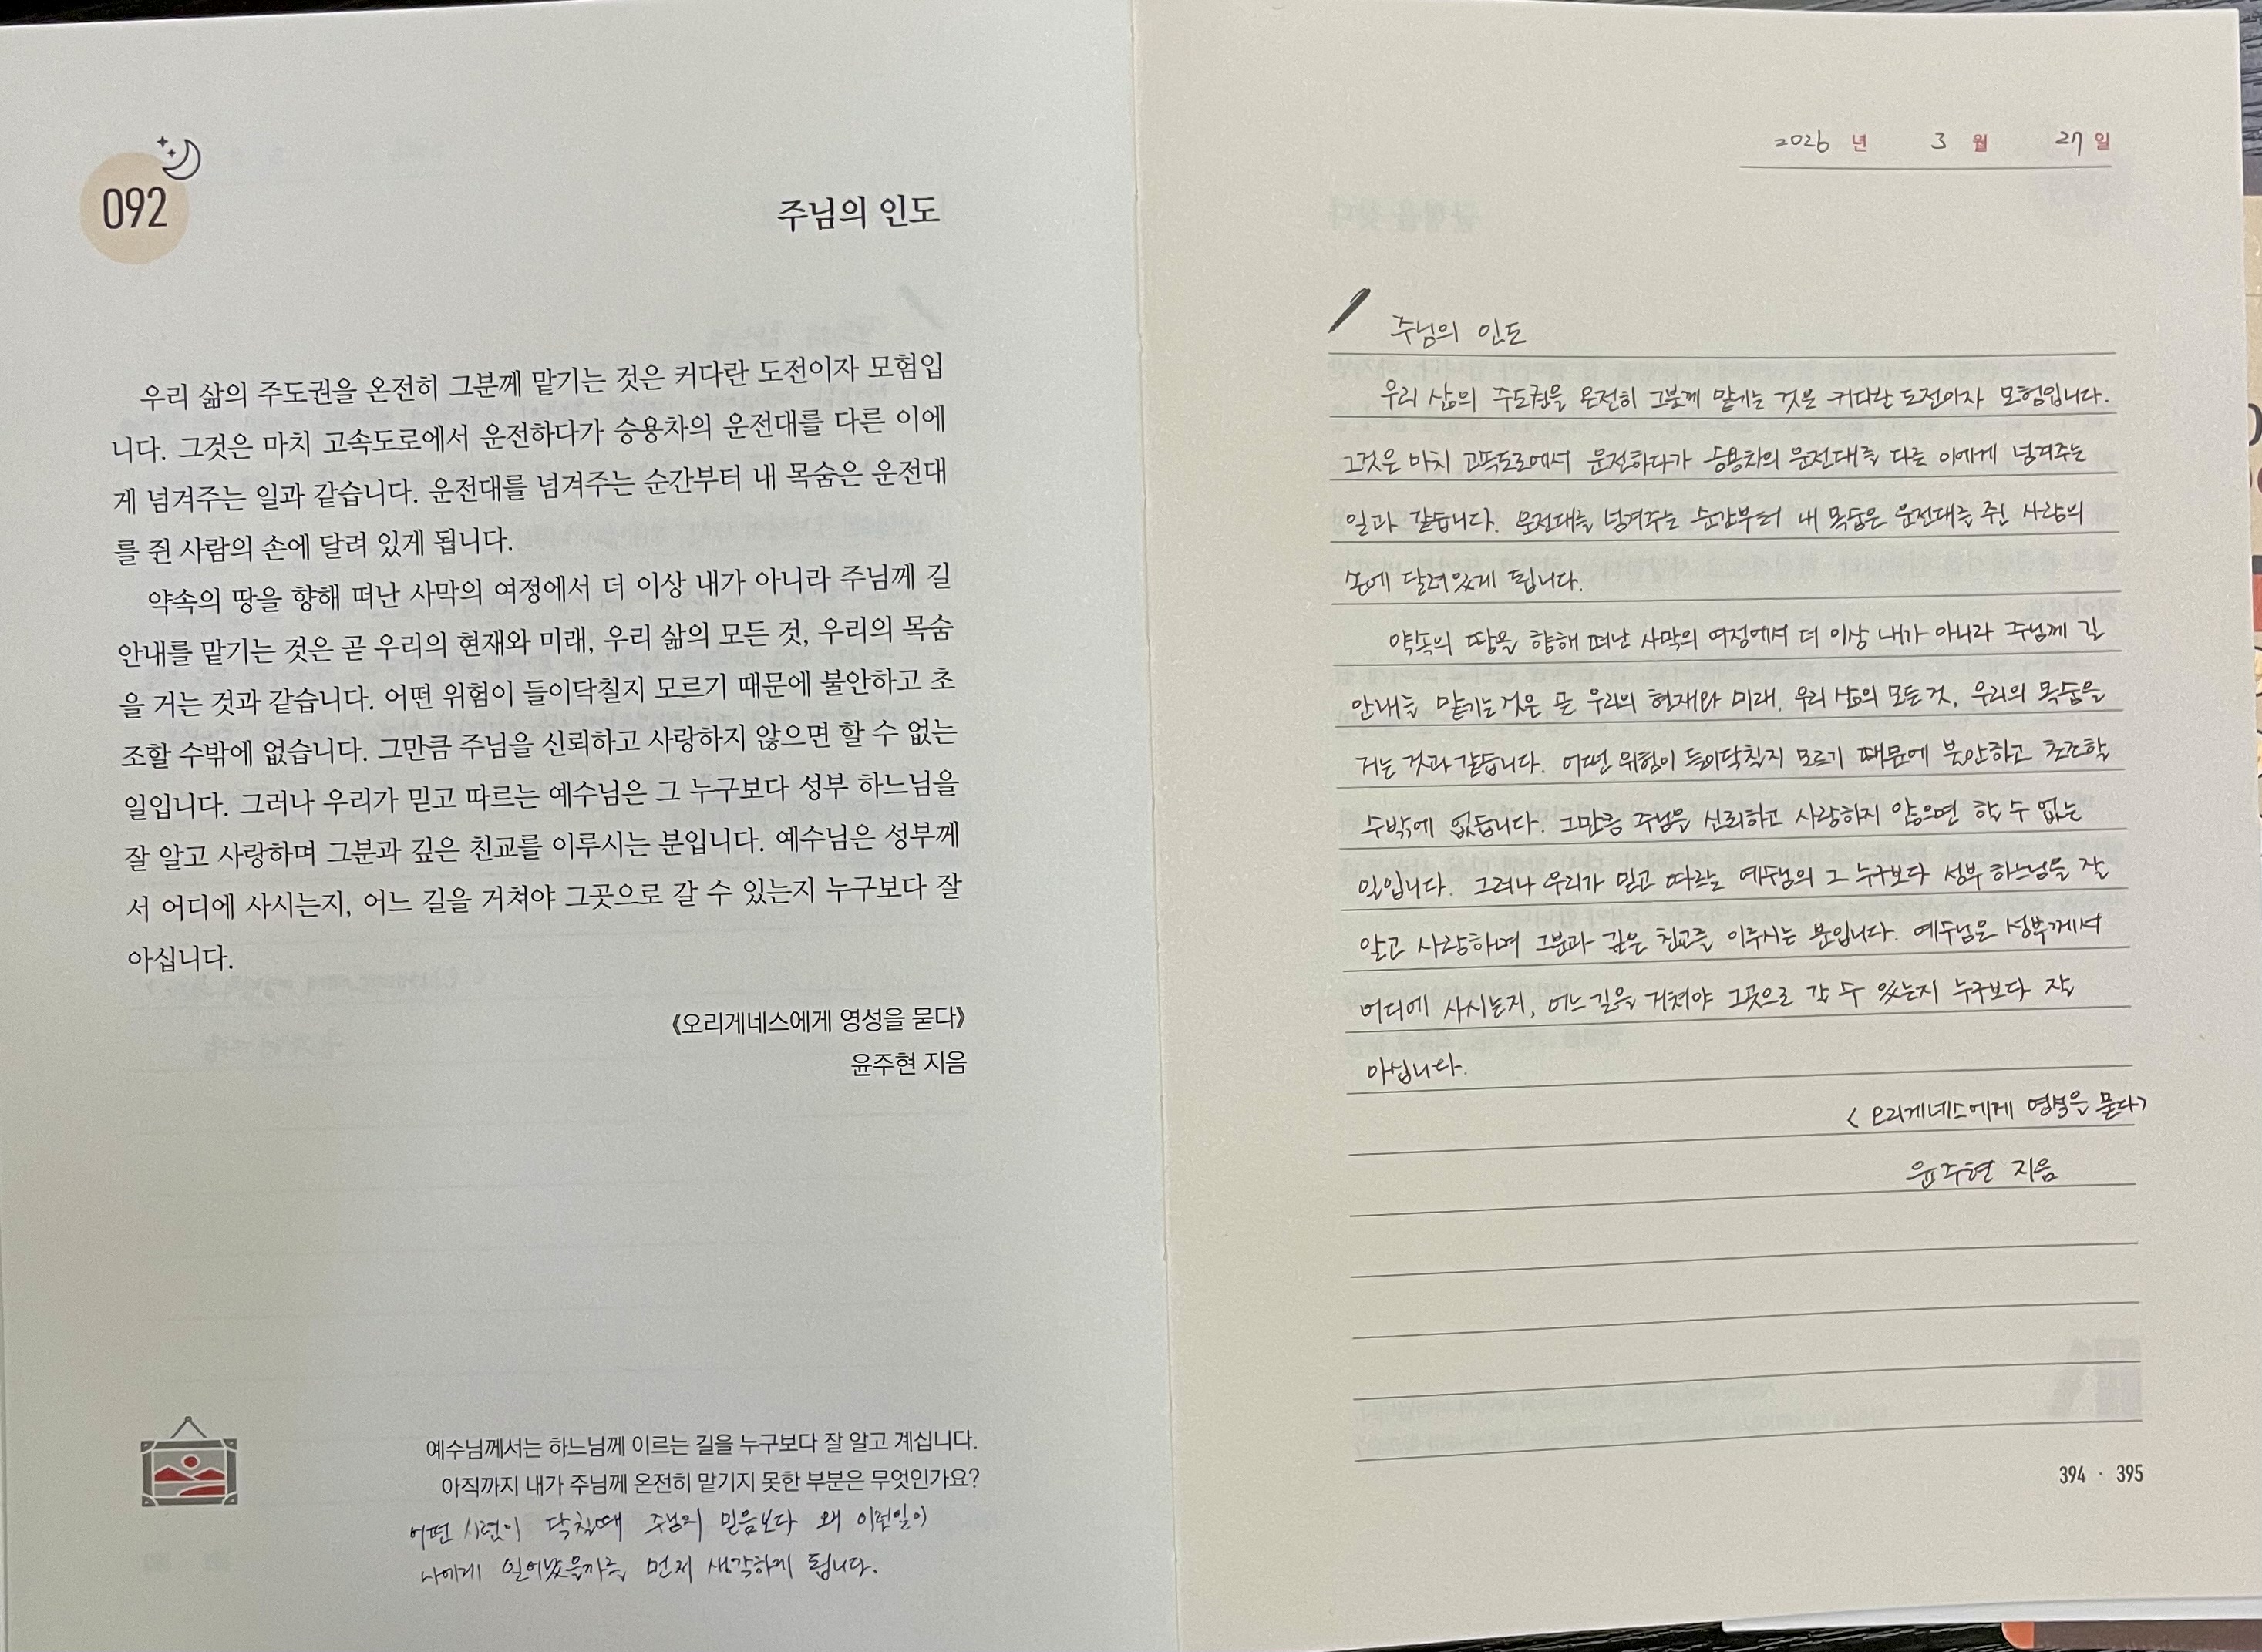 092
주님의 인도
우리 삶의 주도권을 온전히 그분께 맡기는 것은 커다란 도전이자 모험입
니다. 그것은 마치 고속도로에서 운전하다가 승용차의 운전대를 다른 이에
게 넘겨주는 일과 같습니다. 운전대를 넘겨주는 순간부터 내 목숨은 운전대
를 쥔 사람의 손에 달려 있게 됩니다.
약속의 땅을 향해 떠난 사막의 여정에서 더 이상 내가 아니라 주님께 길
안내를 맡기는 것은 곧 우리의 현재와 미래, 우리 삶의 모든 것, 우리의 목숨
을 거는 것과 같습니다. 어떤 위험이 들이닥칠지 모르기 때문에 불안하고 초
조할 수밖에 없습니다. 그만큼 주님을 신뢰하고 사랑하지 않으면 할 수 없는
일입니다. 그러나 우리가 믿고 따르는 예수님은 그 누구보다 성부 하느님을
잘 알고 사랑하며 그분과 깊은 친교를 이루시는 분입니다. 예수님은 성부께
서 어디에 사시는지, 어느 길을 거쳐야 그곳으로 갈 수 있는지 누구보다 잘
아십니다.
《오리게네스에게 영성을 묻다》
윤주현 지음
예수님께서는 하느님께 이르는 길을 누구보다 잘 알고 계십니다.
아직까지 내가 주님께 온전히 맡기지 못한 부분은 무엇인가요?
어떤 시련이 닥칠때 주님의 믿음보다 왜 이런일이
나에게 일어났을까를 먼저 생각하게 됩니다.
2026 년 3 월 27 일
주님의 인도
우리 삶의 주도권을 온전히 그분께 맡기는 것은 커다란 도전이자 모험입니다.
그것은 마치 고속도로에서 운전하다가 승용차의 운전대를 다른 이에게 넘겨주는
일과 같습니다. 운전대를 넘겨주는 순간부터 내 목숨은 운전대를 쥔 사람의
손에 달려있게 됩니다.
약속의 땅을 향해 떠난 사막의 여정에서 더 이상 내가 아니라 주님께 길
안내를 맡기는것은 곧 우리의 현재와 미래, 우리 삶의 모든것, 우리의 목숨을
거는 것과 같습니다. 어떤 위험이 들이닥칠지 모르기 때문에 불안하고 초조할
수밖에 없습니다. 그만큼 주님을 신뢰하고 사랑하지 않으면 할 수 없는
일입니다. 그러나 우리가 믿고 따르는 예수님의 그 누구보다 성부 하느님을 잘
알고 사랑하며 그분과 깊은 친교를 이루시는 분입니다. 예수님은 성부께서
어디에 사시는지, 어느 길을 거쳐야 그곳으로 갈 수 있는지 누구보다 잘
아십니다.
<오리게네스에게 영성을 묻다>
윤주현 지음
394 · 395